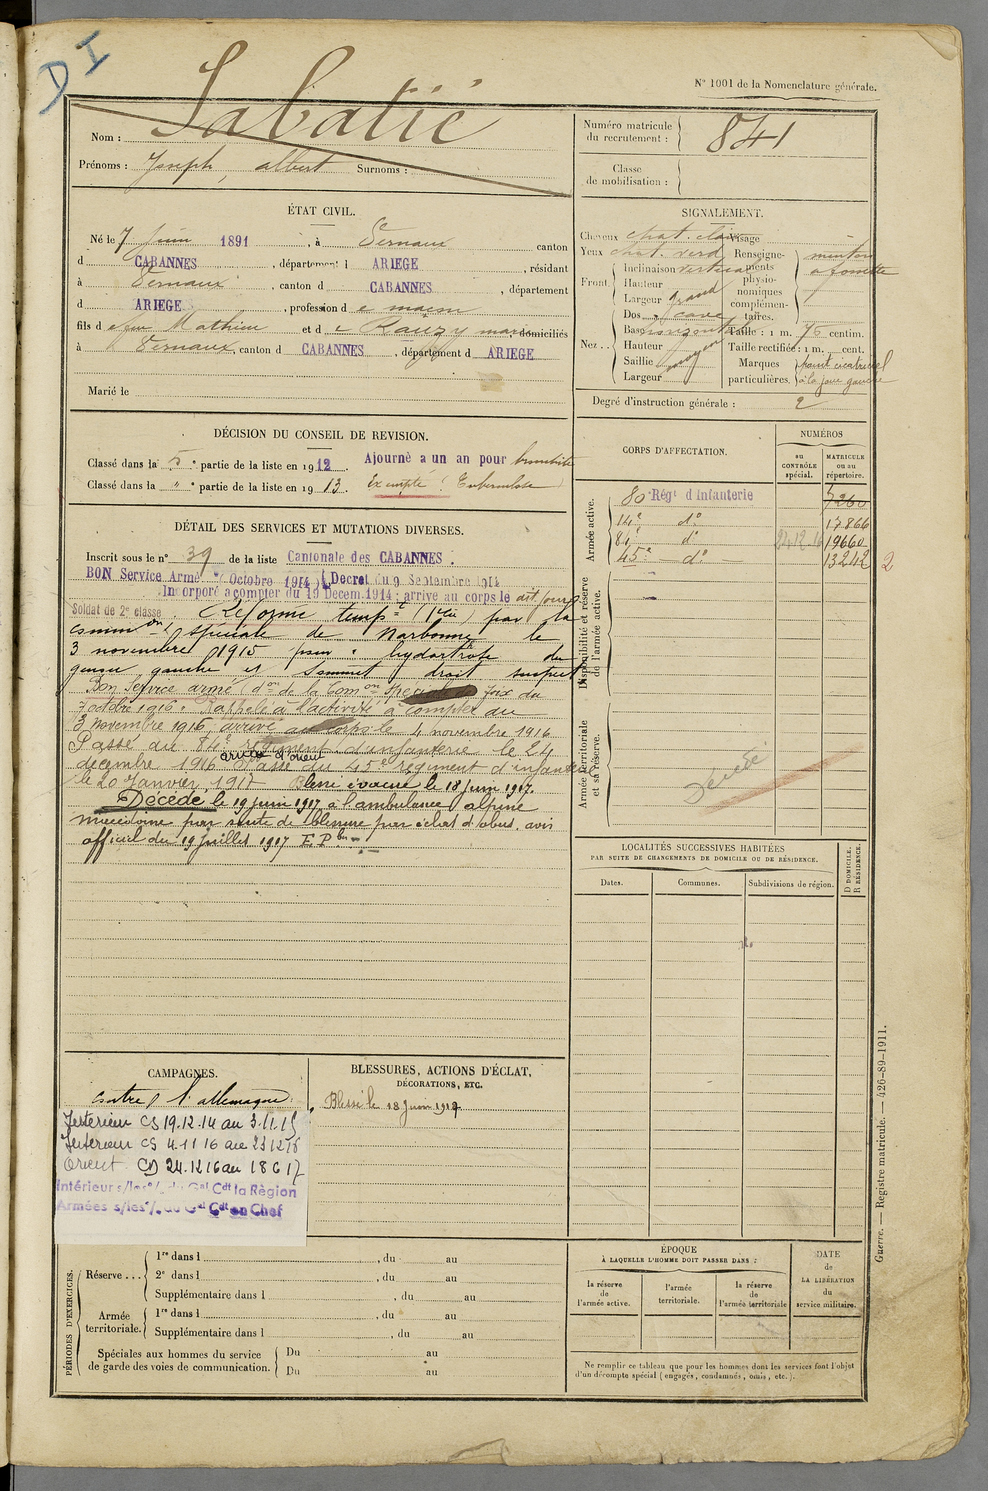 D I
N° 1001 de la Nomenclature générale.
Nom : Sabatié
Prénoms : Joseph, albert Surnoms :
Numéro matricule du recrutement : 841
Classe de mobilisation :
ÉTAT CIVIL.
Né le 7 Juin 1891, à Sernaux canton
d CABANNES, département d ARIEGE, résidant
à Sernaux, canton d CABANNES, département
d ARIEGE, profession de maçon
fils de feu Mathieu et de Rauzy marie domiciliés
à Sernaux, canton d CABANNES, département d ARIEGE
Marié le
SIGNALEMENT.
Cheveux chat. clair Visage
Yeux chat. verd
Front Inclinaison verticale
Hauteur
Largeur grand
Nez Dos cave
Base horizontale
Hauteur moyen
Saillie
Largeur
Renseignements physionomiques complémentaires. menton a fossette
Taille : 1 m. 76 centim.
Taille rectifiée : 1 m. cent.
Marques particulières. à la joue gauche
Degré d'instruction générale : 2
DÉCISION DU CONSEIL DE REVISION.
Classé dans la 5e partie de la liste en 1912. Ajourné a un an pour bronchite
Classé dans la " e partie de la liste en 1913. Exempté : Tuberculose
DÉTAIL DES SERVICES ET MUTATIONS DIVERSES.
Inscrit sous le n° 39 de la liste Cantonale des CABANNES.
BON Service Armé (Octobre 1914) (Decret du 9 Septembre 1914
Incorporé a compter du 19 Decem.1914 ; arrivé au corps le dit jour
Soldat de 2e classe Réformé tempre (1°) par la
common spéciale de Narbonne le
3 novembre 1915 pour : hydartrose du
genou gauche et sommet droit suspect
Bon Service armé (don de la Comon Spéciale Foix du
7 octobre 1916. Rappelé à l'activité à compter du
3 novembre 1916, arrivé au corps le 4 novembre 1916
Passé au 84e régiment d'infanterie le 24
décembre 1916 armée d'orient Passé au 45e régiment d'infanterie
le 20 Janvier 1917 Blessé évacué le 18 Juin 1917.
Décédé le 19 juin 1917 à l'ambulance alpine
macedoine par suite de blessure par éclat d'obus. avis
officiel du 19 juillet 1917
CORPS D'AFFECTATION.
NUMÉROS
au CONTRÔLE spécial.
MATRICULE ou au répertoire.
Armée active.
80 Régt d'Infanterie
14e do 17866
84 do 24.12.16 19660
45e do 13242 2
Disponibilité et réserve de l'armée active.
Armée territoriale et sa réserve.
Décédé
LOCALITÉS SUCCESSIVES HABITÉES
PAR SUITE DE CHANGEMENTS DE DOMICILE OU DE RÉSIDENCE.
Dates. Communes. Subdivisions de région.
D DOMICILE. R RÉSIDENCE.
CAMPAGNES.
contre l'allemagne.
Intérieur CS 19.12.14 au 3.11.15
Intérieur CS 4.11 16 au 23 12 16
Orient CD 24.12 16 au 18 6 17
Intérieur s/les o/. du Gal Cdt la Règion
Armées s/les o/. du Gal Cdt en Chef
BLESSURES, ACTIONS D'ÉCLAT,
DÉCORATIONS, ETC.
Blessé le 18 Juin 1917
PÉRIODES D'EXERCICES.
Réserve ... 1re dans l , du au
2e dans l , du au
Supplémentaire dans l , du au
Armée territoriale. 1re dans l , du au
Supplémentaire dans l , du au
Spéciales aux hommes du service de garde des voies de communication. Du au
Du au
ÉPOQUE
À LAQUELLE L'HOMME DOIT PASSER DANS :
la réserve de l'armée active.
l'armée territoriale.
la réserve de l'armée territoriale
DATE de LA LIBÉRATION du service militaire.
Ne remplir ce tableau que pour les hommes dont les services font l'objet
d'un décompte spécial (engagés, condamnés, omis, etc.).
Guerre. — Registre matricule. — 426-89-1911.